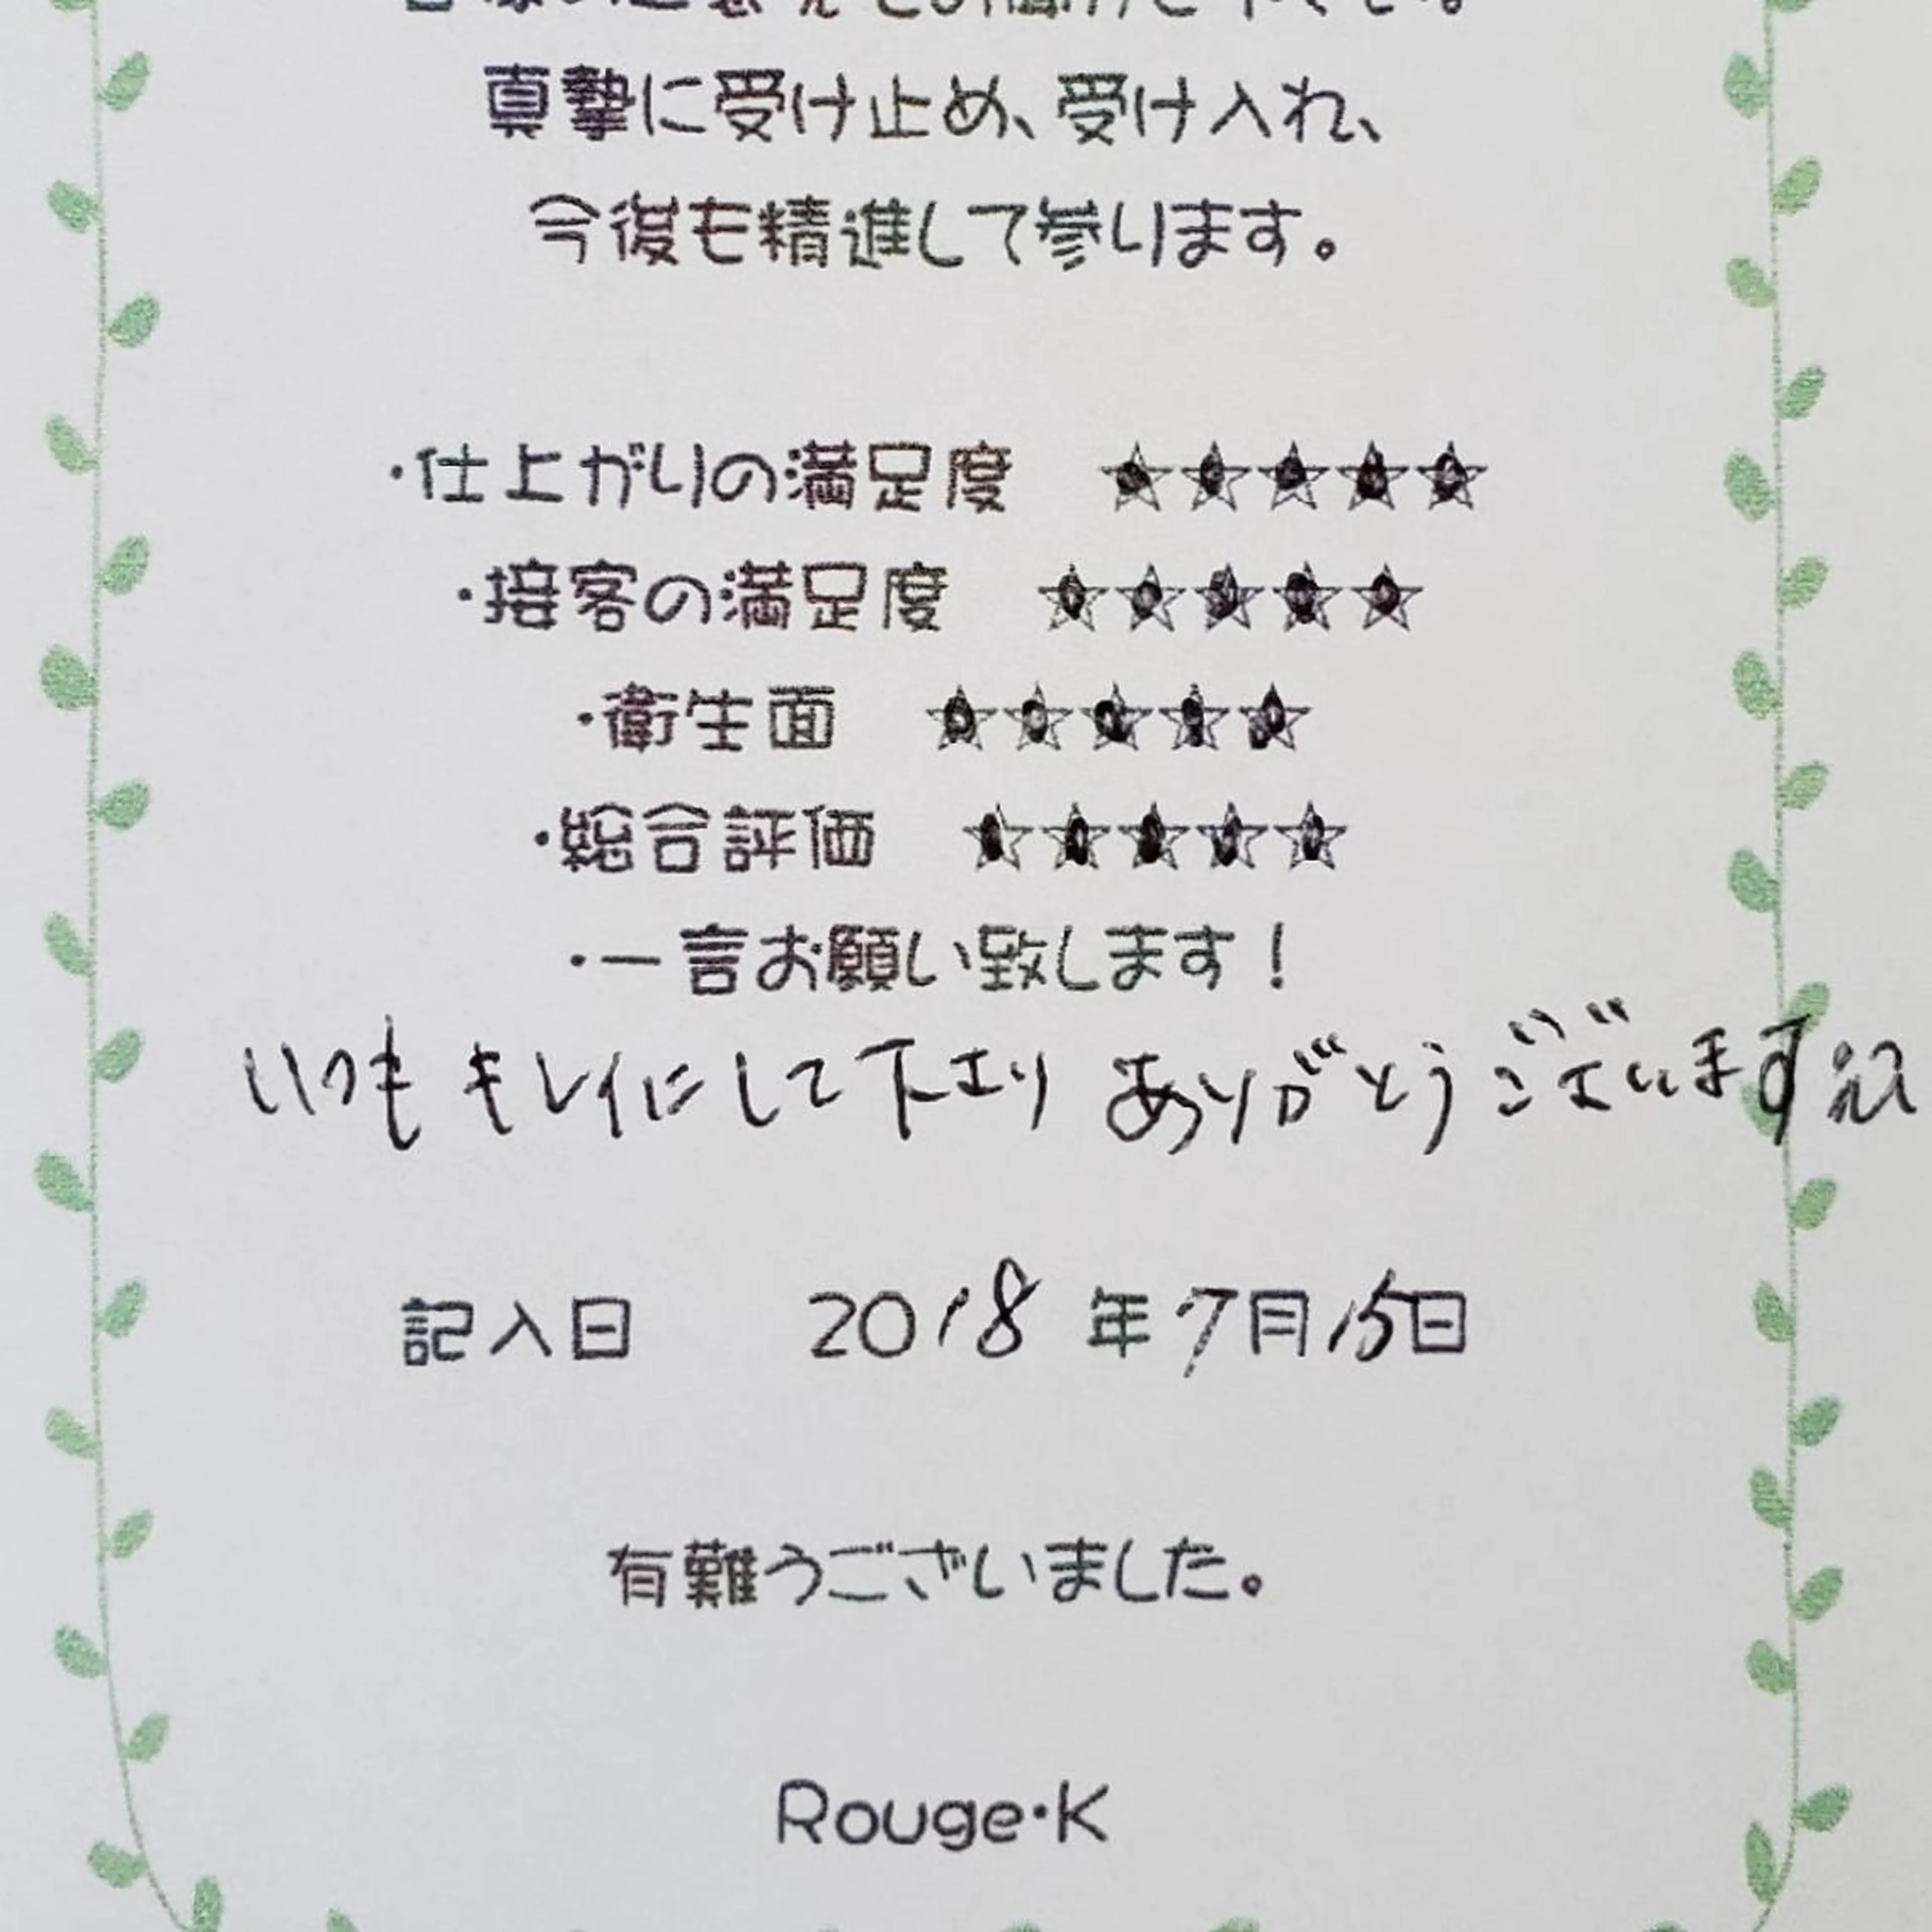 真摯に受け止め、受け入れ、
今後も精進して参ります。
・仕上がりの満足度 ★★★★★
・接客の満足度 ★★★★★
・衛生面 ★★★★★
・総合評価 ★★★★★
・一言お願い致します！
いつもキレイにして下さり ありがとうございます
記入日 2018年7月15日
有難うございました。
Rouge・K